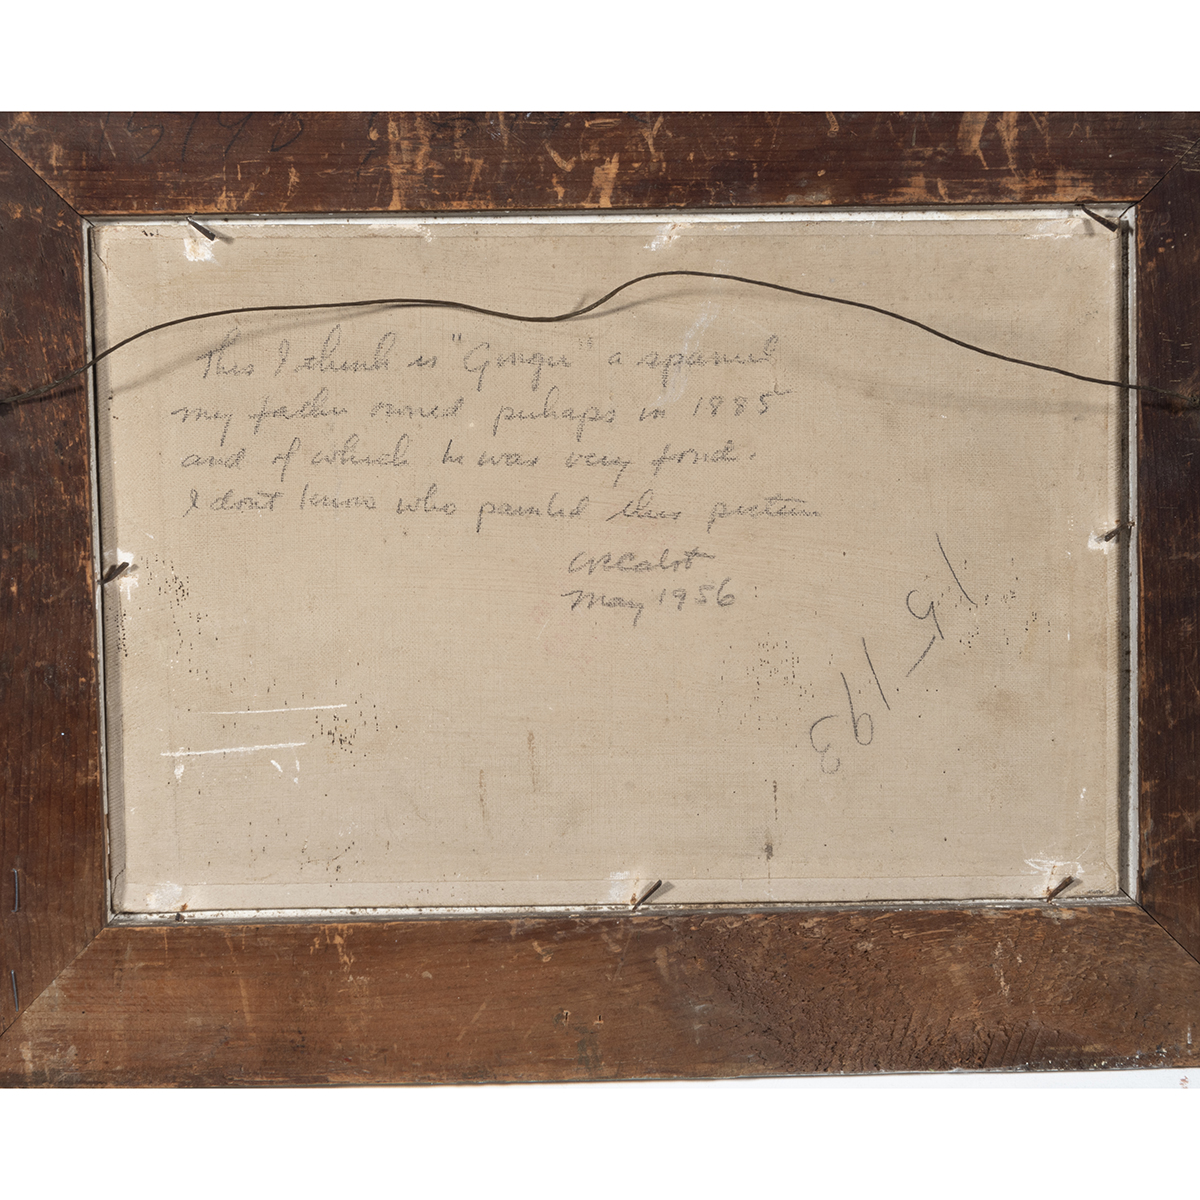 This I think is "Ginger" a spaniel
my father owned perhaps in 1885
and of which he was very fond.
I don't know who painted this picture
CPCabot
May 1956
15-193